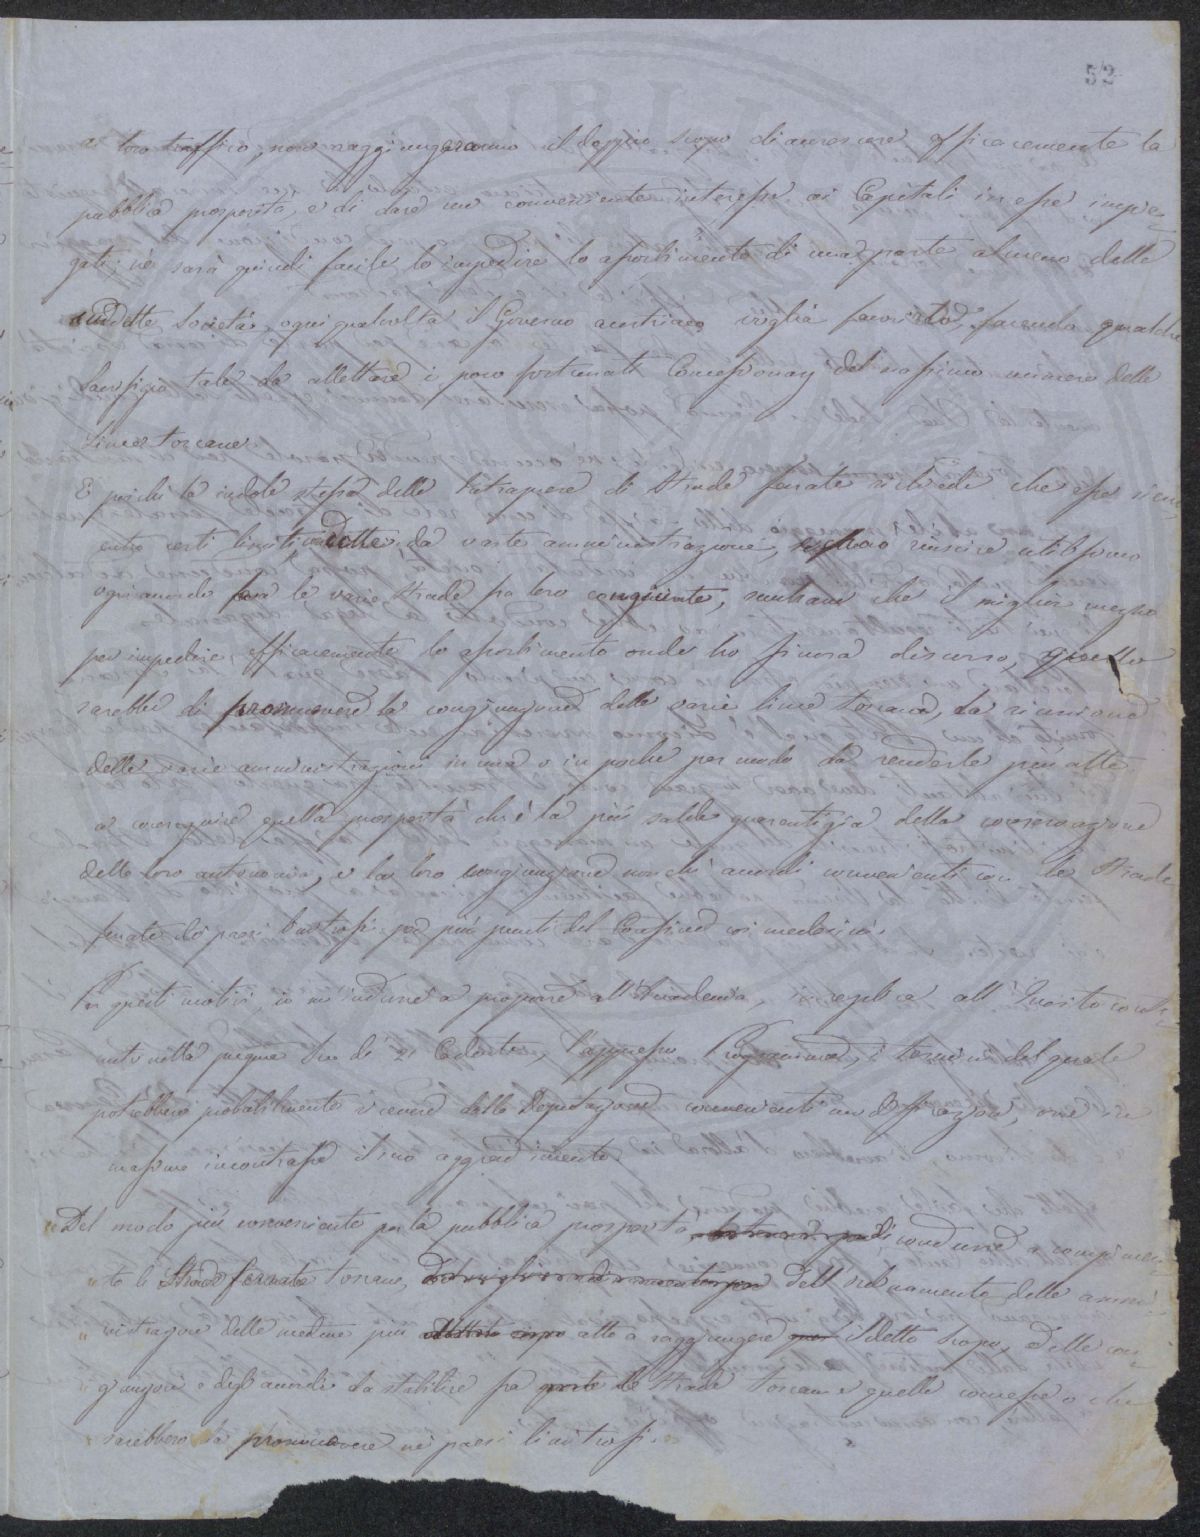 52
al loro traffico, non raggiungeranno il doppio scopo di accrescere efficacemente la
pubblica prosperità, e di dare un conveniente interesse ai Capitali in esse impie-
gati; nè sarà quindi facile lo impedire lo assorbimento di una parte almeno delle
suddette Società, ogni qualvolta il Governo austriaco voglia favorirlo, facendo qualche
Sacrifizio tale da allettare i poco fortunati Concessionarj del massimo numero delle
Linee toscane.
E poichè la indole stessa delle Intraprese di Strade ferrate richiede che esse sieno
entro certi limiti, condotte da vaste amministrazioni, e può riuscire utilissimo
ogni accordo fra le varie strade fra loro congiunte, sembrami che il miglior mezzo
per impedire efficacemente lo assorbimento onde ho finora discorso, quello
sarebbe di promuovere la congiunzione delle varie linee toscane, la riunione
delle varie amministrazioni in una o in poche per modo da renderle più atte
a conseguire quella prosperità ch'è la più salda guarentigia della conservazione
della loro autonomia, e la loro congiunzione non chè accordi convenienti con le Strade
ferrate dei paesi limitrofi per più punti del Confine coi medesimi.
Per questi motivi, io m'indurrei a proporre all'Accademia, in replica all'Quesito conte-
nuto nella pregiata sua de' 21 Cadente, l'appresso Programma, i termini del quale
potrebbero probabilmente ricevere dalla Deputazione convenienti modificazioni, ove in
massima incontrasse il suo aggradimento.
"Del modo più conveniente per la pubblica prosperità di condurre a compimen-
"to le Strade ferrate toscane, dell'ordinamento delle ammi-
"nistrazioni delle medesime più atte a raggiungere il detto scopo, Delle con-
"giunzioni e degli accordi da stabilire fra le Strade toscane e quelle concesse o che
"sarebbero da promuovere nei paesi limitrofi.